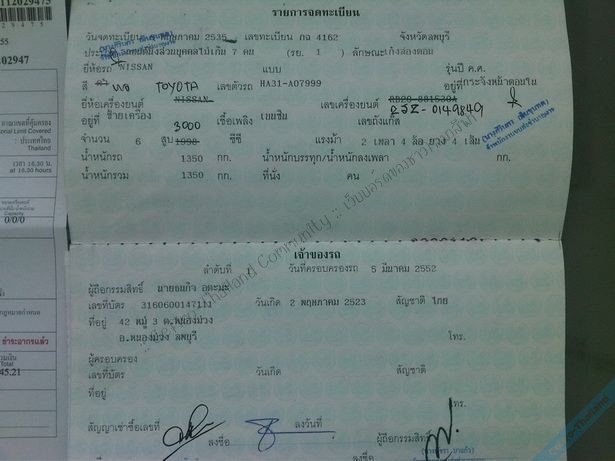 112029475
รายการจดทะเบียน
วันจดทะเบียน พฤษภาคม 2535 เลขทะเบียน กจ 4162 จังหวัดลพบุรี
ประเภท รถยนต์นั่งส่วนบุคคลไม่เกิน 7 คน (รย. 1) ลักษณะ เก๋งสองตอน
ยี่ห้อรถ NISSAN แบบ รุ่นปี ค.ศ.
สี TOYOTA เลขตัวรถ HA31-A07999 อยู่ที่ กระจังหน้าตอนใน
ยี่ห้อเครื่องยนต์ NISSAN เลขเครื่องยนต์ RD28-881530A
2JZ-0149849
อยู่ที่ ซ้ายเครื่อง 3000 เชื้อเพลิง เบนซิน เลขถังแก๊ส
จำนวน 6 สูบ 1998 ซีซี แรงม้า 2 เพลา 4 ล้อ ยาง 4 เส้น
น้ำหนักรถ 1350 กก. น้ำหนักบรรทุก/น้ำหนักลงเพลา กก.
น้ำหนักรวม 1350 กก. ที่นั่ง คน
เจ้าของรถ
ลำดับที่ 1 วันที่ครอบครองรถ 5 มีนาคม 2552
ผู้ถือกรรมสิทธิ์ นายธนกิจ
เลขที่บัตร 3160600147111 วันเกิด 2 พฤษภาคม 2523 สัญชาติ ไทย
ที่อยู่ 42 หมู่ 3 ต.หนองม่วง
อ.หนองม่วง ลพบุรี โทร.
ผู้ครอบครอง
เลขที่บัตร วันเกิด สัญชาติ
ที่อยู่
โทร.
สัญญาเช่าซื้อเลขที่ ลงวันที่ ผู้ถือกรรมสิทธิ์
ลงชื่อ ลงชื่อ
02947
Limit Covered
: ประเทศไทย
Thailand
เวลา 16.30 น.
at 16.30 hours
Capacity
0/0/0
ชำระอากรแล้ว
Total
45.21
Thailand Community ::